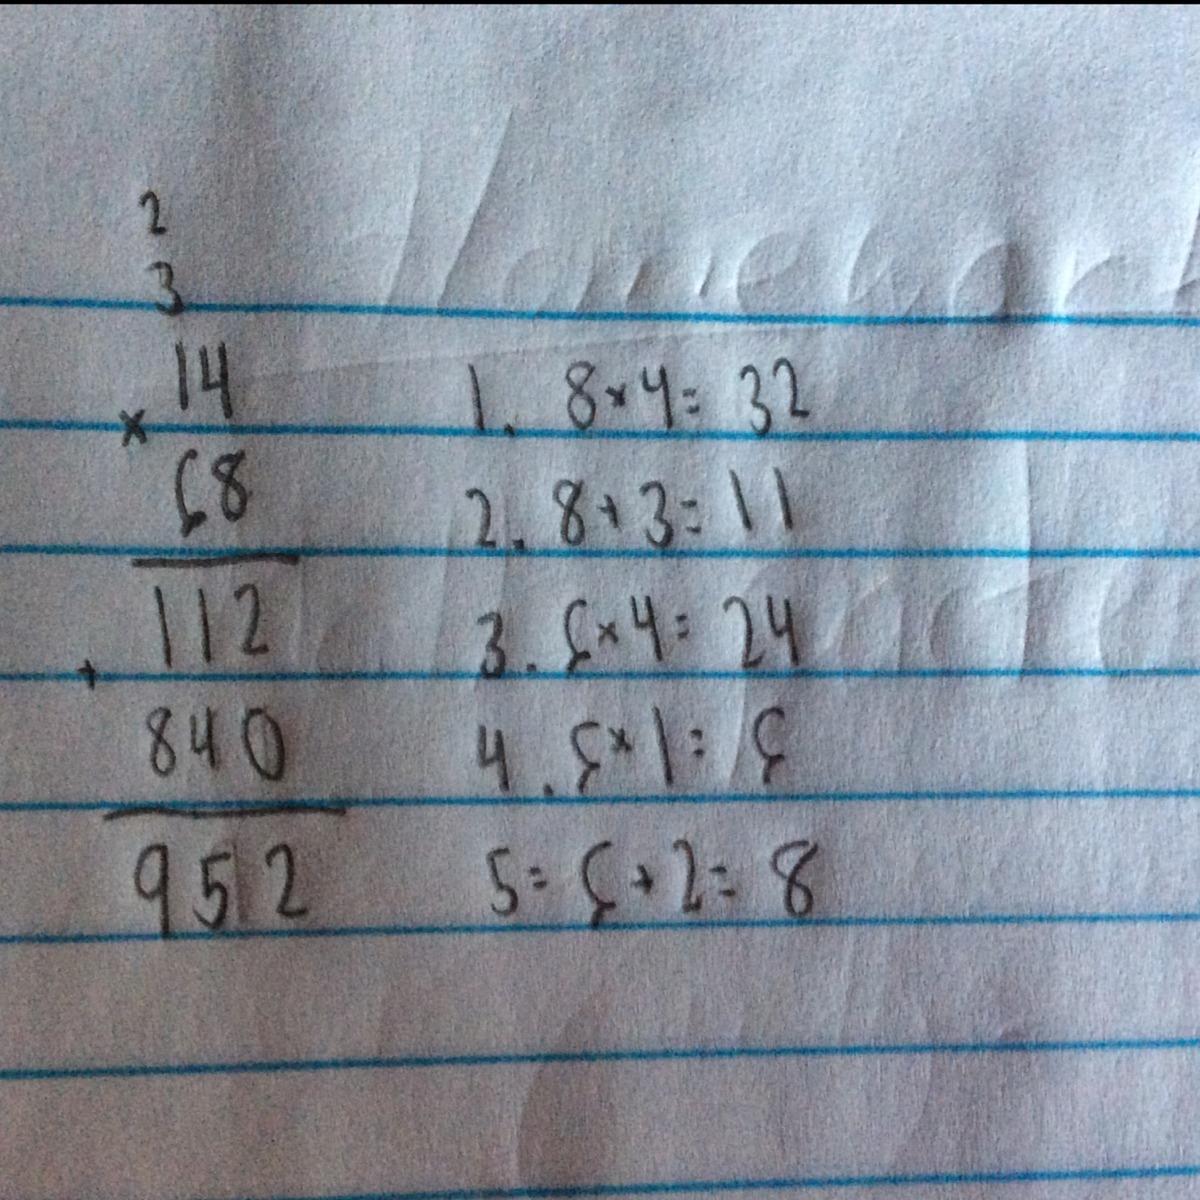 2
3
14
×
68
112
+
840
952
1. 8×4= 32
2. 8+3= 11
3. 6×4= 24
4. 6×1= 6
5= 6+2= 8